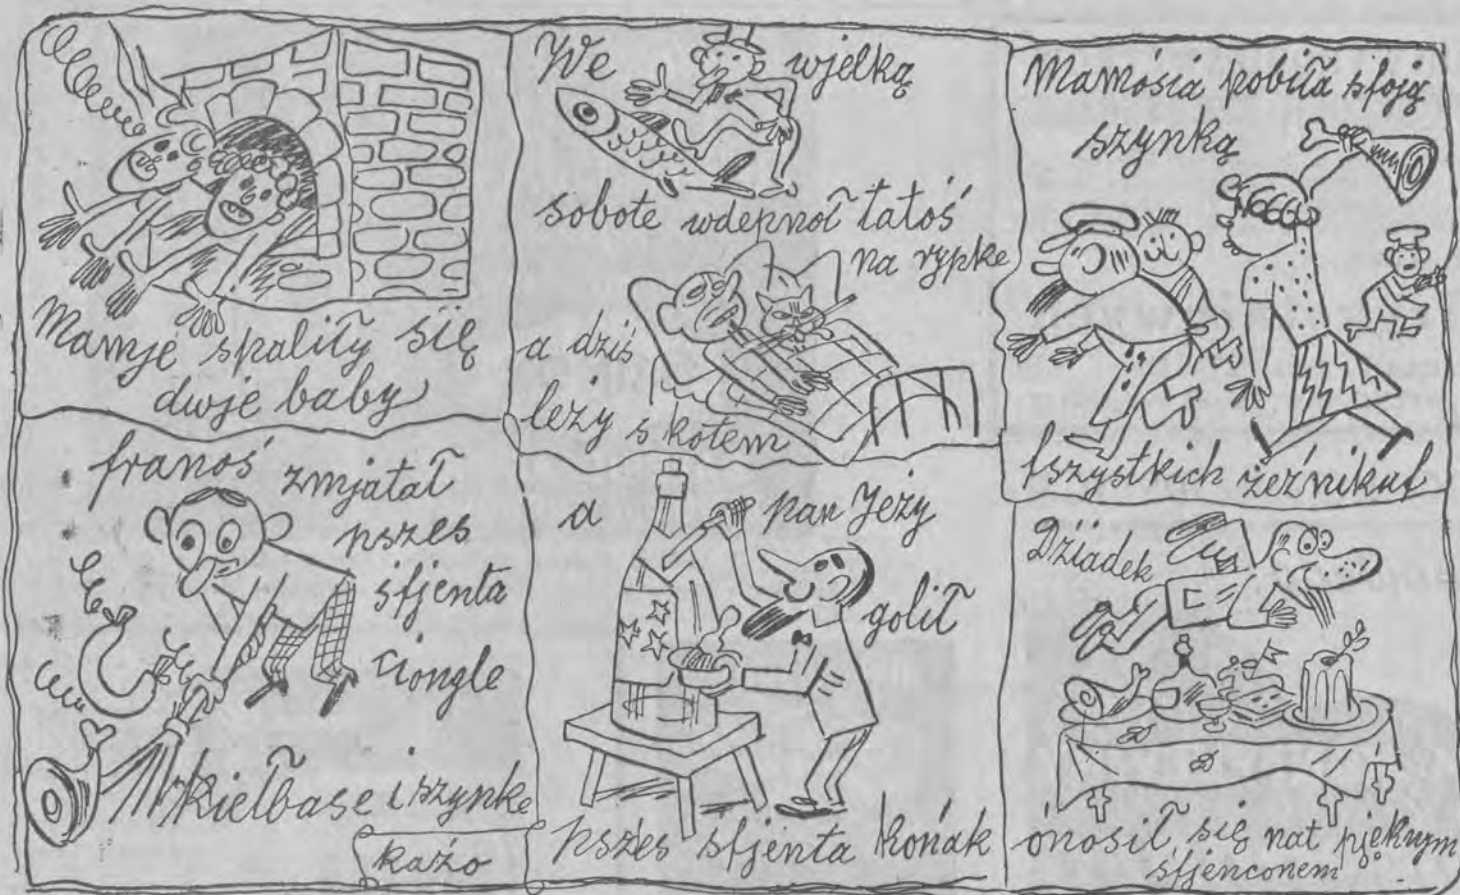 Mamje spaliły się
dwje baby
We wjelką
sobote wdepnoł tatoś
na rypke
a dziś
leży s kotem
Mamósia pobiła sfoją
szynką
fszystkich żeźnikuf
franoś zmjatał
pszes
sfjenta
ciongle
kiełbase i szynke
a pan Jeży
golił
pszes sfjenta końak
Dziadek
ónosił się nat pjęknym
sfjenconem